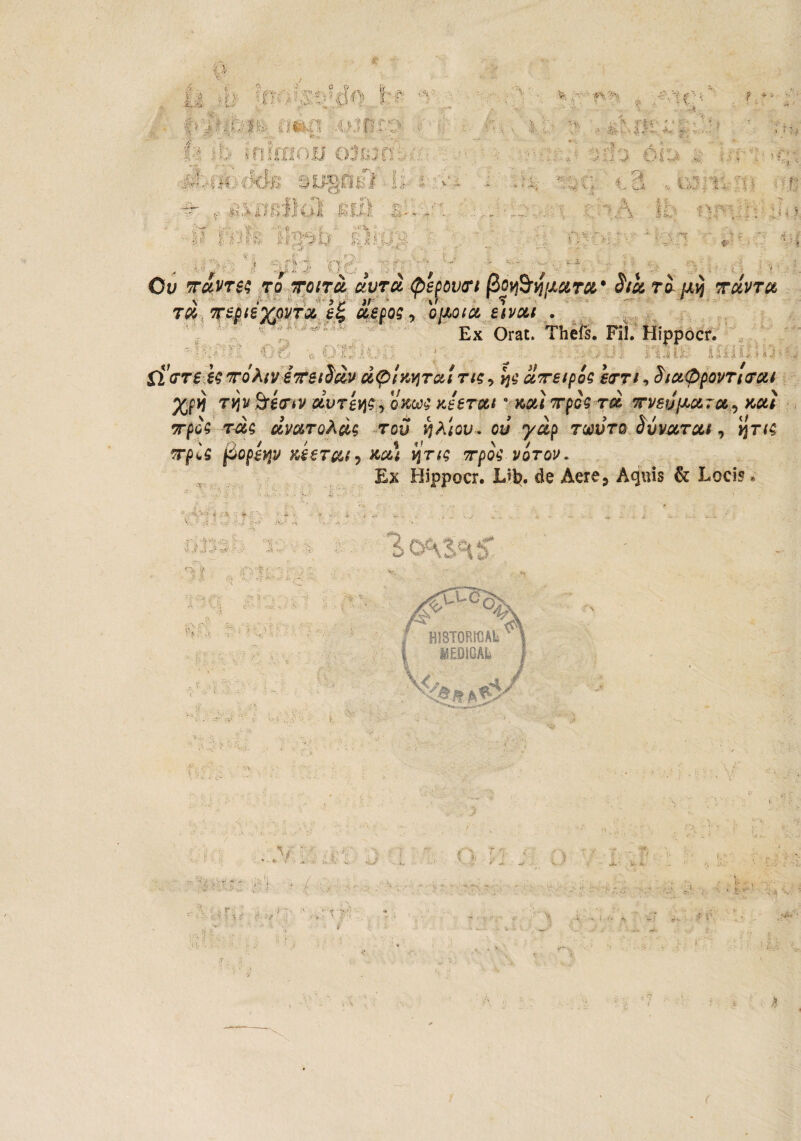 Ου πάντες τὸ ποιτὰ ἀυτὰ φέρουσι βοηθήματα· διὰ τὸ μὴ πάντα
τὰ περιέχοντα ἐξ ἀέρος, ὅμοια εἶναι .
Ex Orat. Thess. Fil. Hippocr.
Ὥστε ἐς πόλιν ἐπειδὰν ἀφίκηταί τις, ἧς ἄπειρός ἐστι, διαφροντίσαι
χρὴ τὴν θέσιν ἀυτέης, ὅκως κέεται · καὶ πρὸς τὰ πνεύματα, καὶ
πρὸς τὰς ἀνατολὰς τοῦ ἡλίου. οὐ γὰρ τωυτὸ δύναται, ἥτις
πρὸς βορέην κέεται, καὶ ἥτις πρὸς νότον.
Ex Hippocr. Lib. de Aere, Aquis & Locis.
WELLCOME
HISTORICAL
MEDICAL
LIBRARY